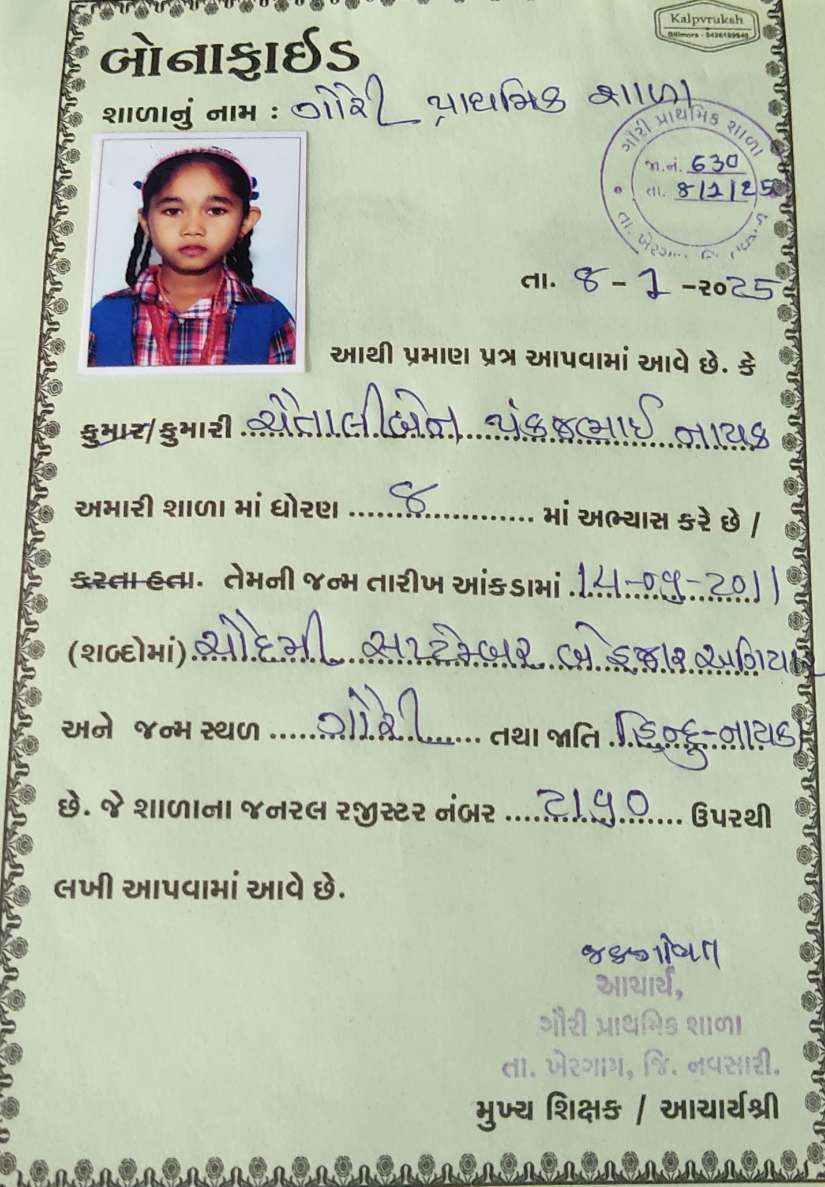 Kalpvruksh
Bilimora - 9426189949
બોનાફાઈડ
શાળાનું નામ : ગૌરી પ્રાથમિક શાળા
ગૌરી પ્રાથમિક શાળા
જા.નં. 630
તા. 8/1/25
તા. ખેરગામ જિ. નવસારી
તા. ૪ - 1 -૨૦25
આથી પ્રમાણ પત્ર આપવામાં આવે છે. કે
કુમાર/કુમારી ચૈતાલીબેન પંકજભાઈ નાયક
અમારી શાળા માં ધોરણ ........ ૪ ........ માં અભ્યાસ કરે છે /
કરતા હતા. તેમની જન્મ તારીખ આંકડામાં 14-09-2011
(શબ્દોમાં) ચૌદમી સપ્ટેમ્બર બે હજાર અગિયાર
અને જન્મ સ્થળ ...... ગૌરી ...... તથા જાતિ હિન્દુ-નાયકા
છે. જે શાળાના જનરલ રજીસ્ટર નંબર ...... ઉપરથી
લખી આપવામાં આવે છે.
આચાર્ય,
ગૌરી પ્રાથમિક શાળા
તા. ખેરગામ, જિ. નવસારી.
મુખ્ય શિક્ષક / આચાર્યશ્રી